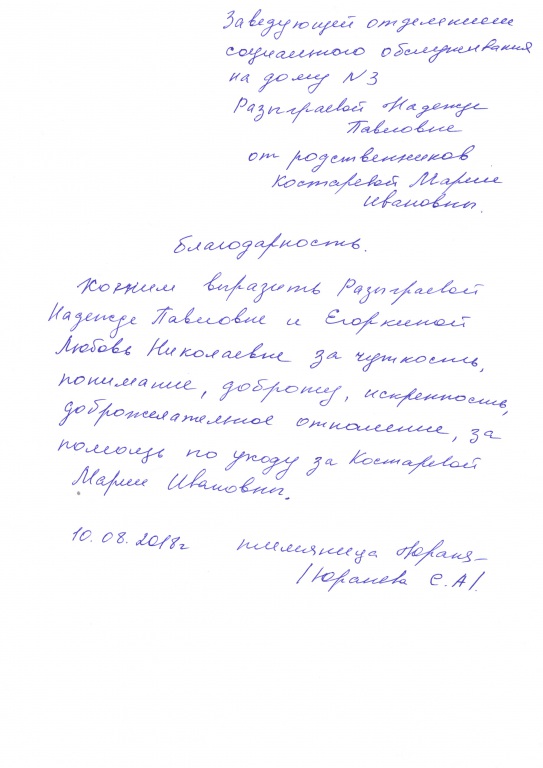 Заведующей отделением
социального обслуживания
на дому N3
Разыграевой Надежде
Павловне
от родственников
Костаревой Марии
Ивановны.
Благодарность.
Хотим выразить Разыграевой
Надежде Павловне и Егоркиной
Любовь Николаевне за чуткость,
понимание, доброту, искренность,
доброжелательное отношение, за
помощь по уходу за Костаревой
Марии Ивановны.
10.08.2018г племянница
/Юранева С.А/.